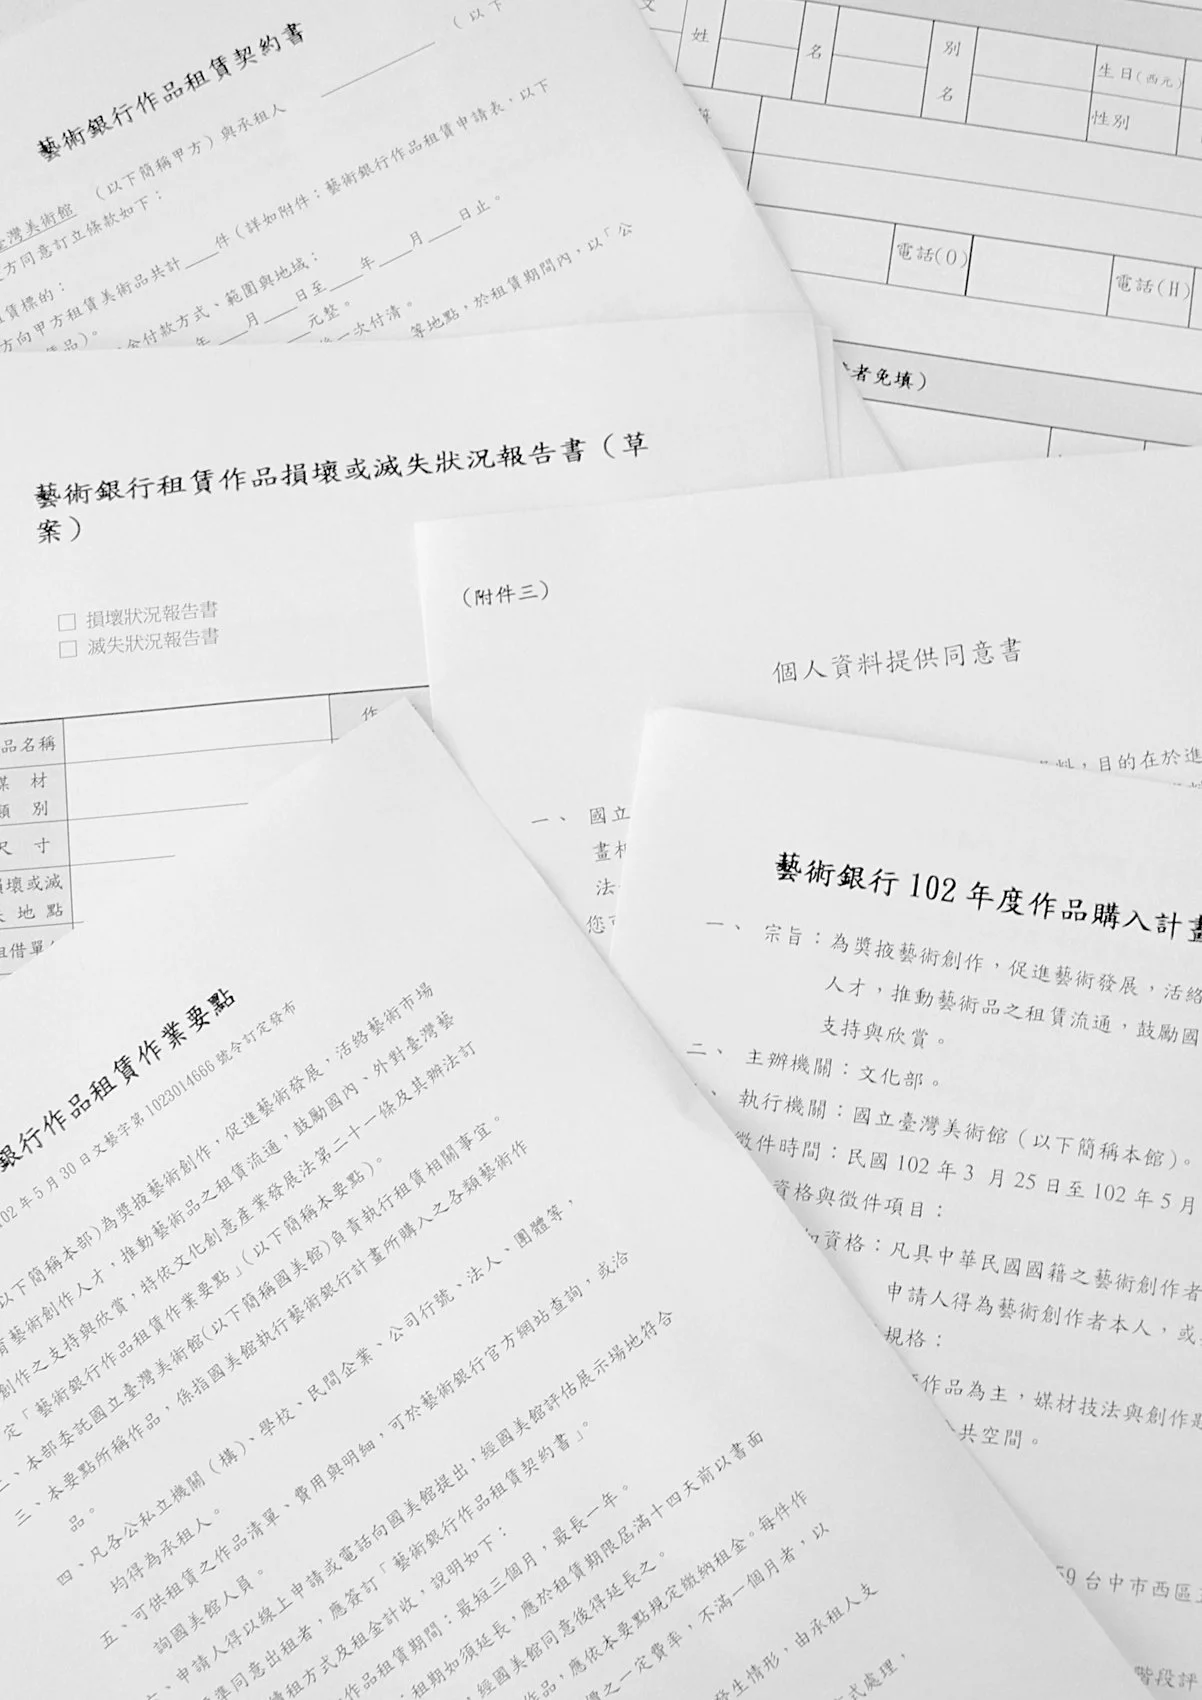 藝術銀行作品租賃契約書
（以下
臺灣美術館 （以下簡稱甲方）與承租人
方同意訂立條款如下：
租賃標的：
方向甲方租賃美術品共計 件（詳如附件：藝術銀行作品租賃申請表，以下
品）。
金付款方式、範圍與地域：
年 月 日至 年 月 日止。
元整。
一次付清。
等地點，於租賃期間內，以「公
姓
名
別
名
生日(西元)
性別
電話(O)
電話(H)
者免填）
藝術銀行租賃作品損壞或滅失狀況報告書（草
案）
□ 損壞狀況報告書
□ 滅失狀況報告書
品名稱
作
媒 材
類 別
尺 寸
損壞或滅
失 地 點
租借單位
（附件三）
個人資料提供同意書
料，目的在於進
一、 國立
畫相
法
您可
藝術銀行 102 年度作品購入計畫
一、 宗旨：為獎掖藝術創作，促進藝術發展，活絡
人才，推動藝術品之租賃流通，鼓勵國
支持與欣賞。
二、 主辦機關：文化部。
、 執行機關：國立臺灣美術館（以下簡稱本館）。
徵件時間：民國 102 年 3 月 25 日至 102 年 5 月
資格與徵件項目：
資格：凡具中華民國國籍之藝術創作者
申請人得為藝術創作者本人，或
規格：
作品為主，媒材技法與創作題
共空間。
59 台中市西區五
階段評
銀行作品租賃作業要點
102 年 5 月 30 日文藝字第 1023014666 號令訂定發布
以下簡稱本部)為獎掖藝術創作，促進藝術發展，活絡藝術市場
育藝術創作人才，推動藝術品之租賃流通，鼓勵國內、外對臺灣藝
創作之支持與欣賞，特依文化創意產業發展法第二十一條及其辦法訂
定「藝術銀行作品租賃作業要點」（以下簡稱本要點）。
二、本部委託國立臺灣美術館(以下簡稱國美館)負責執行租賃相關事宜。
三、本要點所稱作品，係指國美館執行藝術銀行計畫所購入之各類藝術作
品。
四、凡各公私立機關（構）、學校、民間企業、公司行號、法人、團體等，
均得為承租人。
五、可供租賃之作品清單、費用與明細，可於藝術銀行官方網站查詢，或洽
詢國美館人員。
六、申請人得以線上申請或電話向國美館提出，經國美館評估展示場地符合
準同意出租者，應簽訂「藝術銀行作品租賃契約書」。
續租方式及租金計收，說明如下：
作品租賃期間：最短三個月，最長一年。
租期如須延長，應於租賃期限屆滿十四天前以書面
，經國美館同意後得延長之。
作品，應依本要點規定繳納租金。每件作
價之一定費率，不滿一個月者，以
發生情形，由承租人支
式處理，